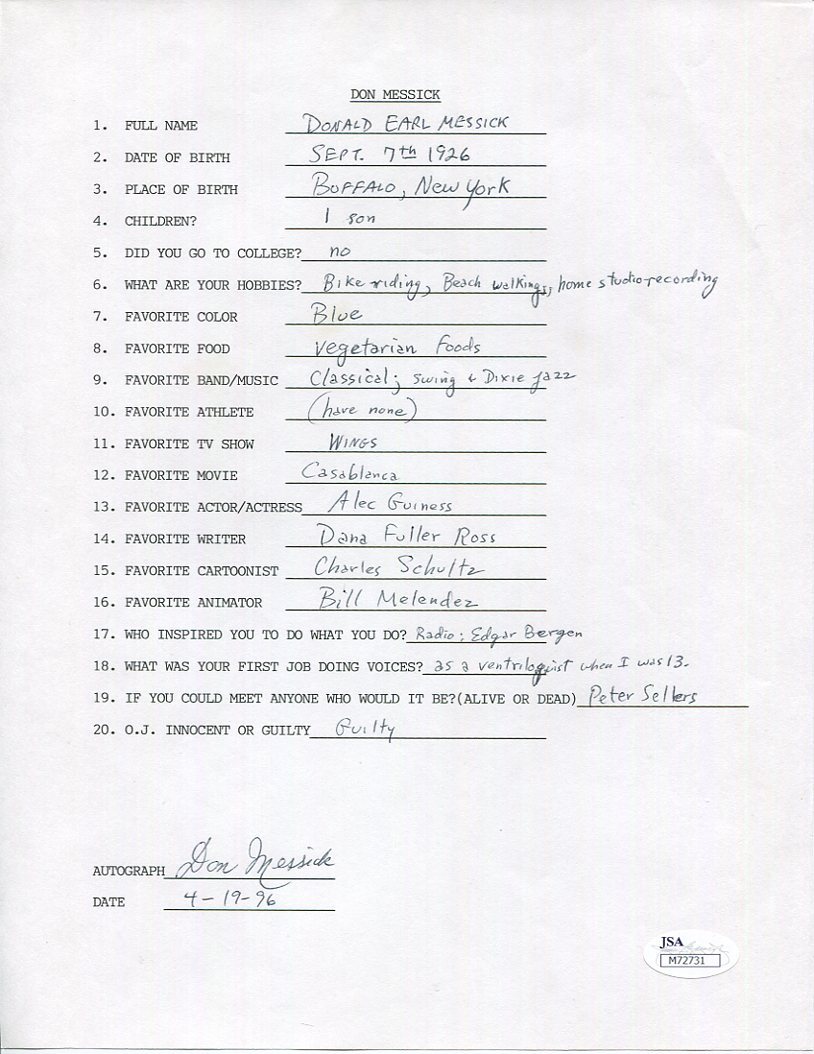 DON MESSICK
1. FULL NAME DONALD EARL MESSICK
2. DATE OF BIRTH SEPT. 7th 1926
3. PLACE OF BIRTH BUFFALO, New York
4. CHILDREN? 1 son
5. DID YOU GO TO COLLEGE? no
6. WHAT ARE YOUR HOBBIES? Bike riding, Beach walking, home studio-recording
7. FAVORITE COLOR Blue
8. FAVORITE FOOD Vegetarian Foods
9. FAVORITE BAND/MUSIC Classical; swing & Dixie jazz
10. FAVORITE ATHLETE (have none)
11. FAVORITE TV SHOW WINGS
12. FAVORITE MOVIE Casablanca
13. FAVORITE ACTOR/ACTRESS Alec Guiness
14. FAVORITE WRITER Dana Fuller Ross
15. FAVORITE CARTOONIST Charles Schultz
16. FAVORITE ANIMATOR Bill Melendez
17. WHO INSPIRED YOU TO DO WHAT YOU DO? Radio: Edgar Bergen
18. WHAT WAS YOUR FIRST JOB DOING VOICES? as a ventriloquist when I was 13.
19. IF YOU COULD MEET ANYONE WHO WOULD IT BE?(ALIVE OR DEAD) Peter Sellers
20. O.J. INNOCENT OR GUILTY Guilty
AUTOGRAPH Don Messick
DATE 4-19-96
JSA
M72731